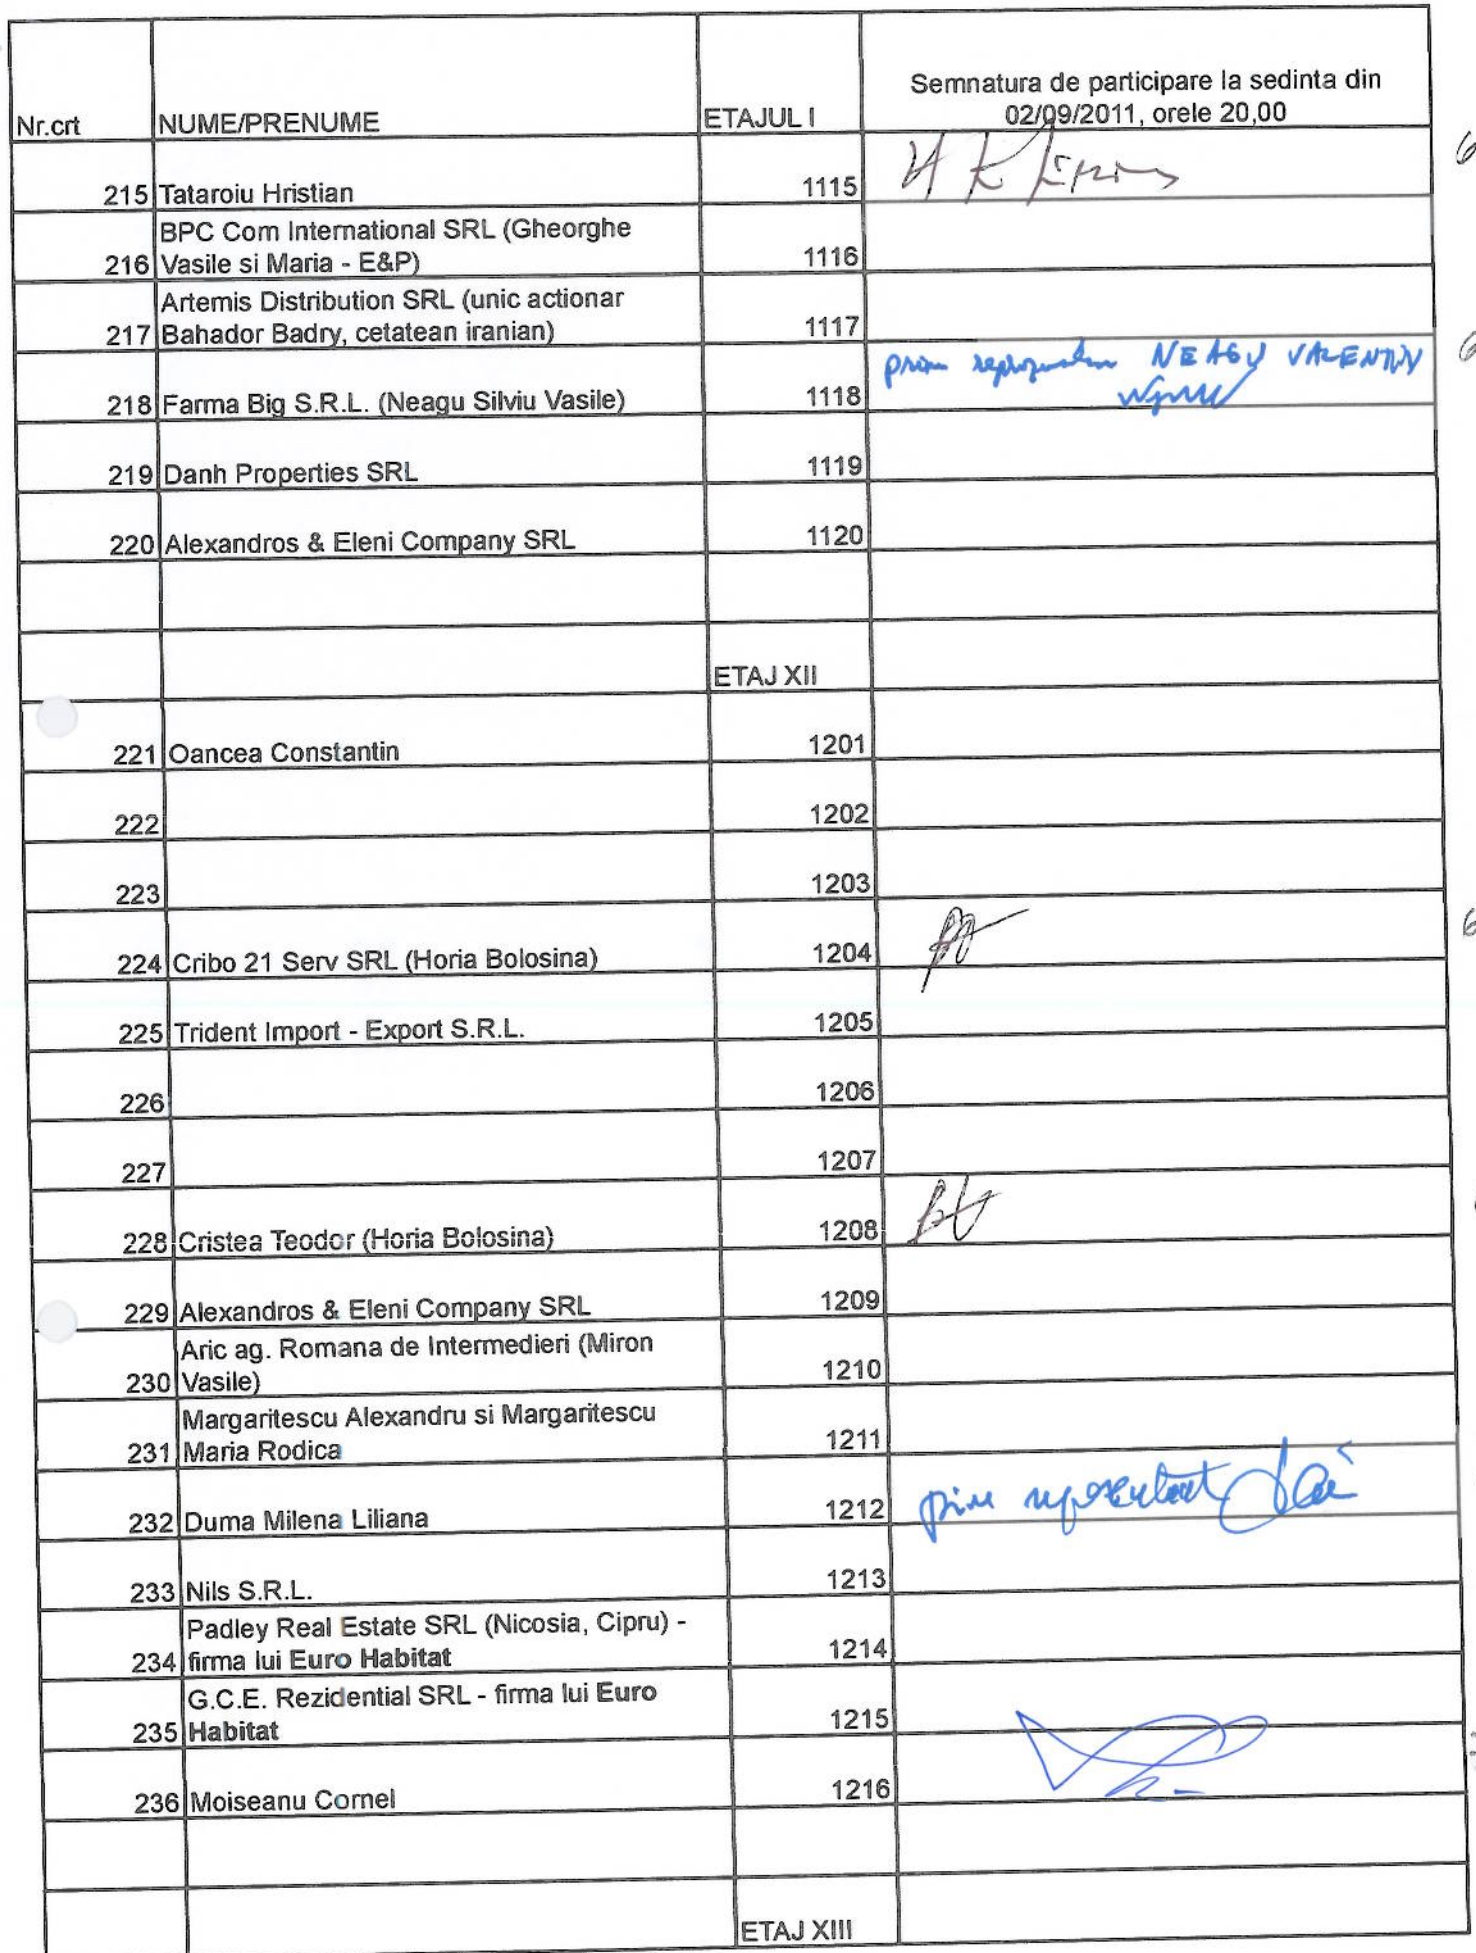 Nr.crt NUME/PRENUME ETAJUL I Semnatura de participare la sedinta din
02/09/2011, orele 20,00
215 Tataroiu Hristian 1115
BPC Com International SRL (Gheorghe
216 Vasile si Maria - E&P) 1116
Artemis Distribution SRL (unic actionar
217 Bahador Badry, cetatean iranian) 1117
prin NEAGU VALENTIN
218 Farma Big S.R.L. (Neagu Silviu Vasile) 1118
219 Danh Properties SRL 1119
220 Alexandros & Eleni Company SRL 1120
ETAJ XII
221 Oancea Constantin 1201
222 1202
223 1203
224 Cribo 21 Serv SRL (Horia Bolosina) 1204
225 Trident Import - Export S.R.L. 1205
226 1206
227 1207
228 Cristea Teodor (Horia Bolosina) 1208
229 Alexandros & Eleni Company SRL 1209
Aric ag. Romana de Intermedieri (Miron
230 Vasile) 1210
Margaritescu Alexandru si Margaritescu
231 Maria Rodica 1211
232 Duma Milena Liliana 1212 prin reprezentant
233 Nils S.R.L. 1213
Padley Real Estate SRL (Nicosia, Cipru) -
234 firma lui Euro Habitat 1214
G.C.E. Rezidential SRL - firma lui Euro
235 Habitat 1215
236 Moiseanu Cornel 1216
ETAJ XIII